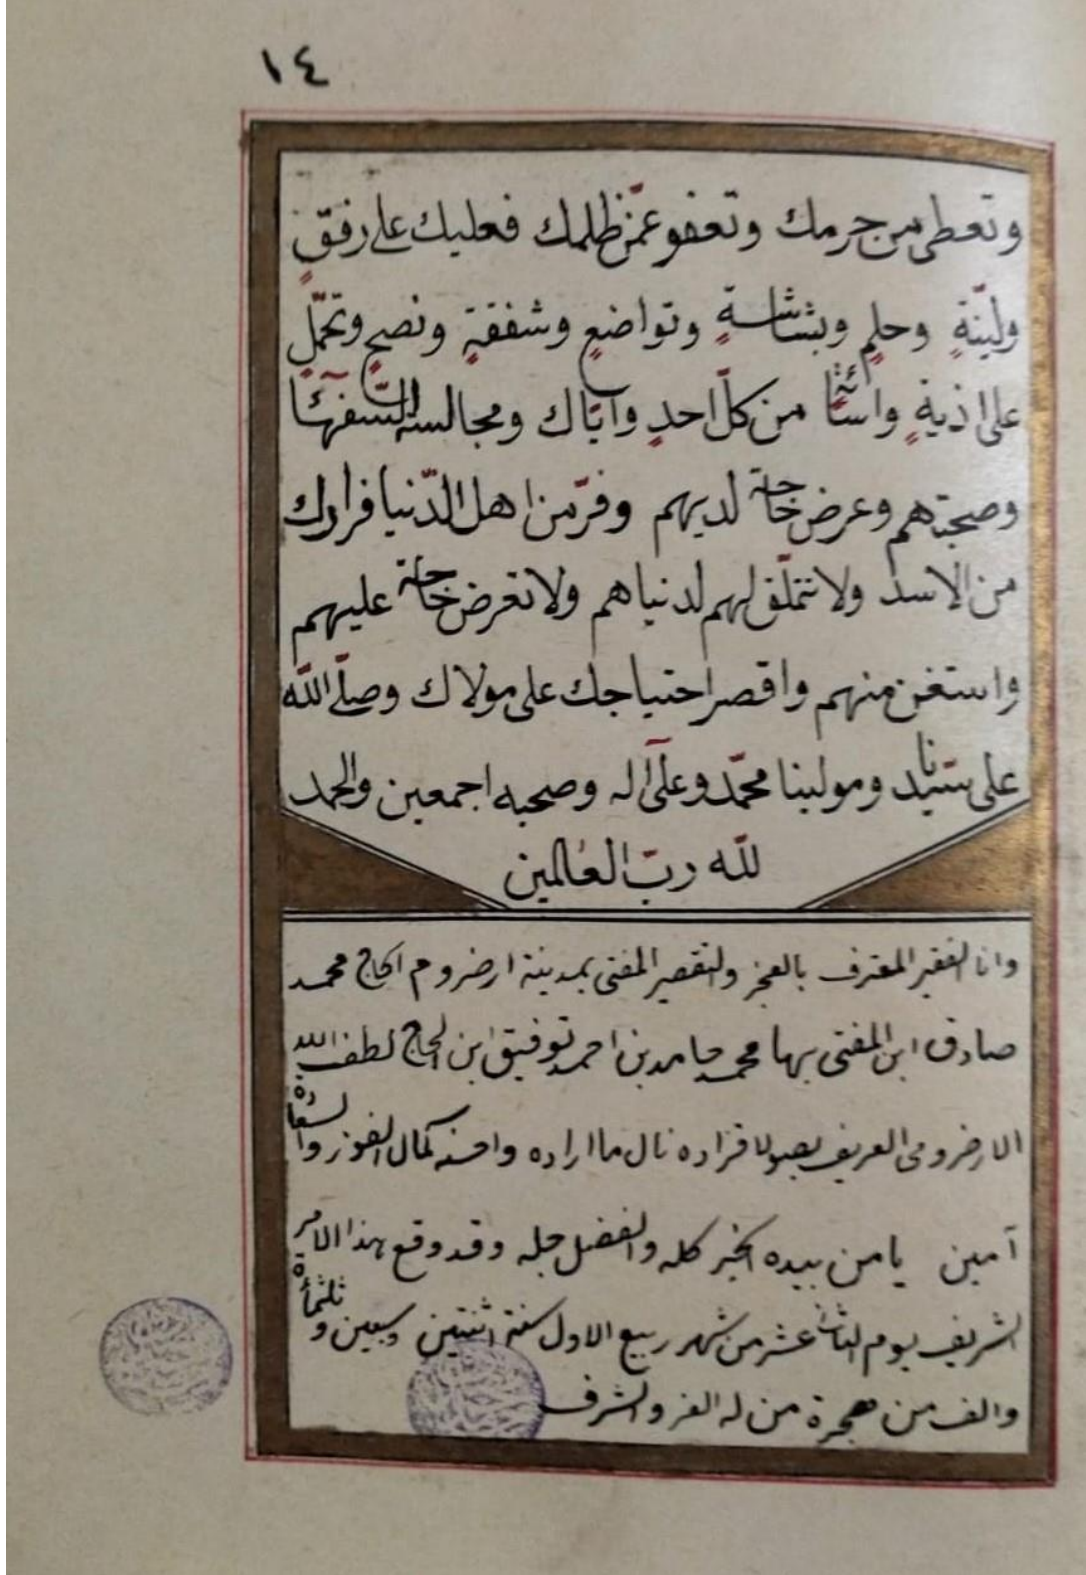 ١٤
وتعطى من حرمك وتعفو عمّن ظلمك فعليك على رفقٍ
ولينةٍ وحلمٍ وبشاشةٍ وتواضعٍ وشفقةٍ ونصحٍ وتحمّلٍ
على اذيةٍ من كلّ احدٍ وايّاك ومجالسة السّفهآء
وصحبتهم وعرض حاجة لديهم وفرّ من اهل الدّنيا فرارك
من الاسد ولا تتملّق لهم لدنياهم ولا تعرض حاجة عليهم
واستغن منهم واقصر احتياجك على مولاك وصلّى اللّه
على سيّدنا ومولينا محمّد وعلى آله وصحبه اجمعين والحمد
للّه ربّ العالمين
وانا الفقير المعترف بالعجز والتقصير المفتى بمدينة ارضروم الحاج محمد
صادق ابن المفتى بها محمد حامد بن احمد توفيق ابن الحاج لطف الله
الارضرومى العريف نال ما اراده وامنه كمال الفوز والسعاده
آمين يا من بيده الخير كله والفضل جله وقد وقع هذا الامر
الشريف يوم الثانى عشر من شهر ربيع الاول سنة اثنتين وسبعين وثلثمأة
والف من هجرة من له العز والشرف